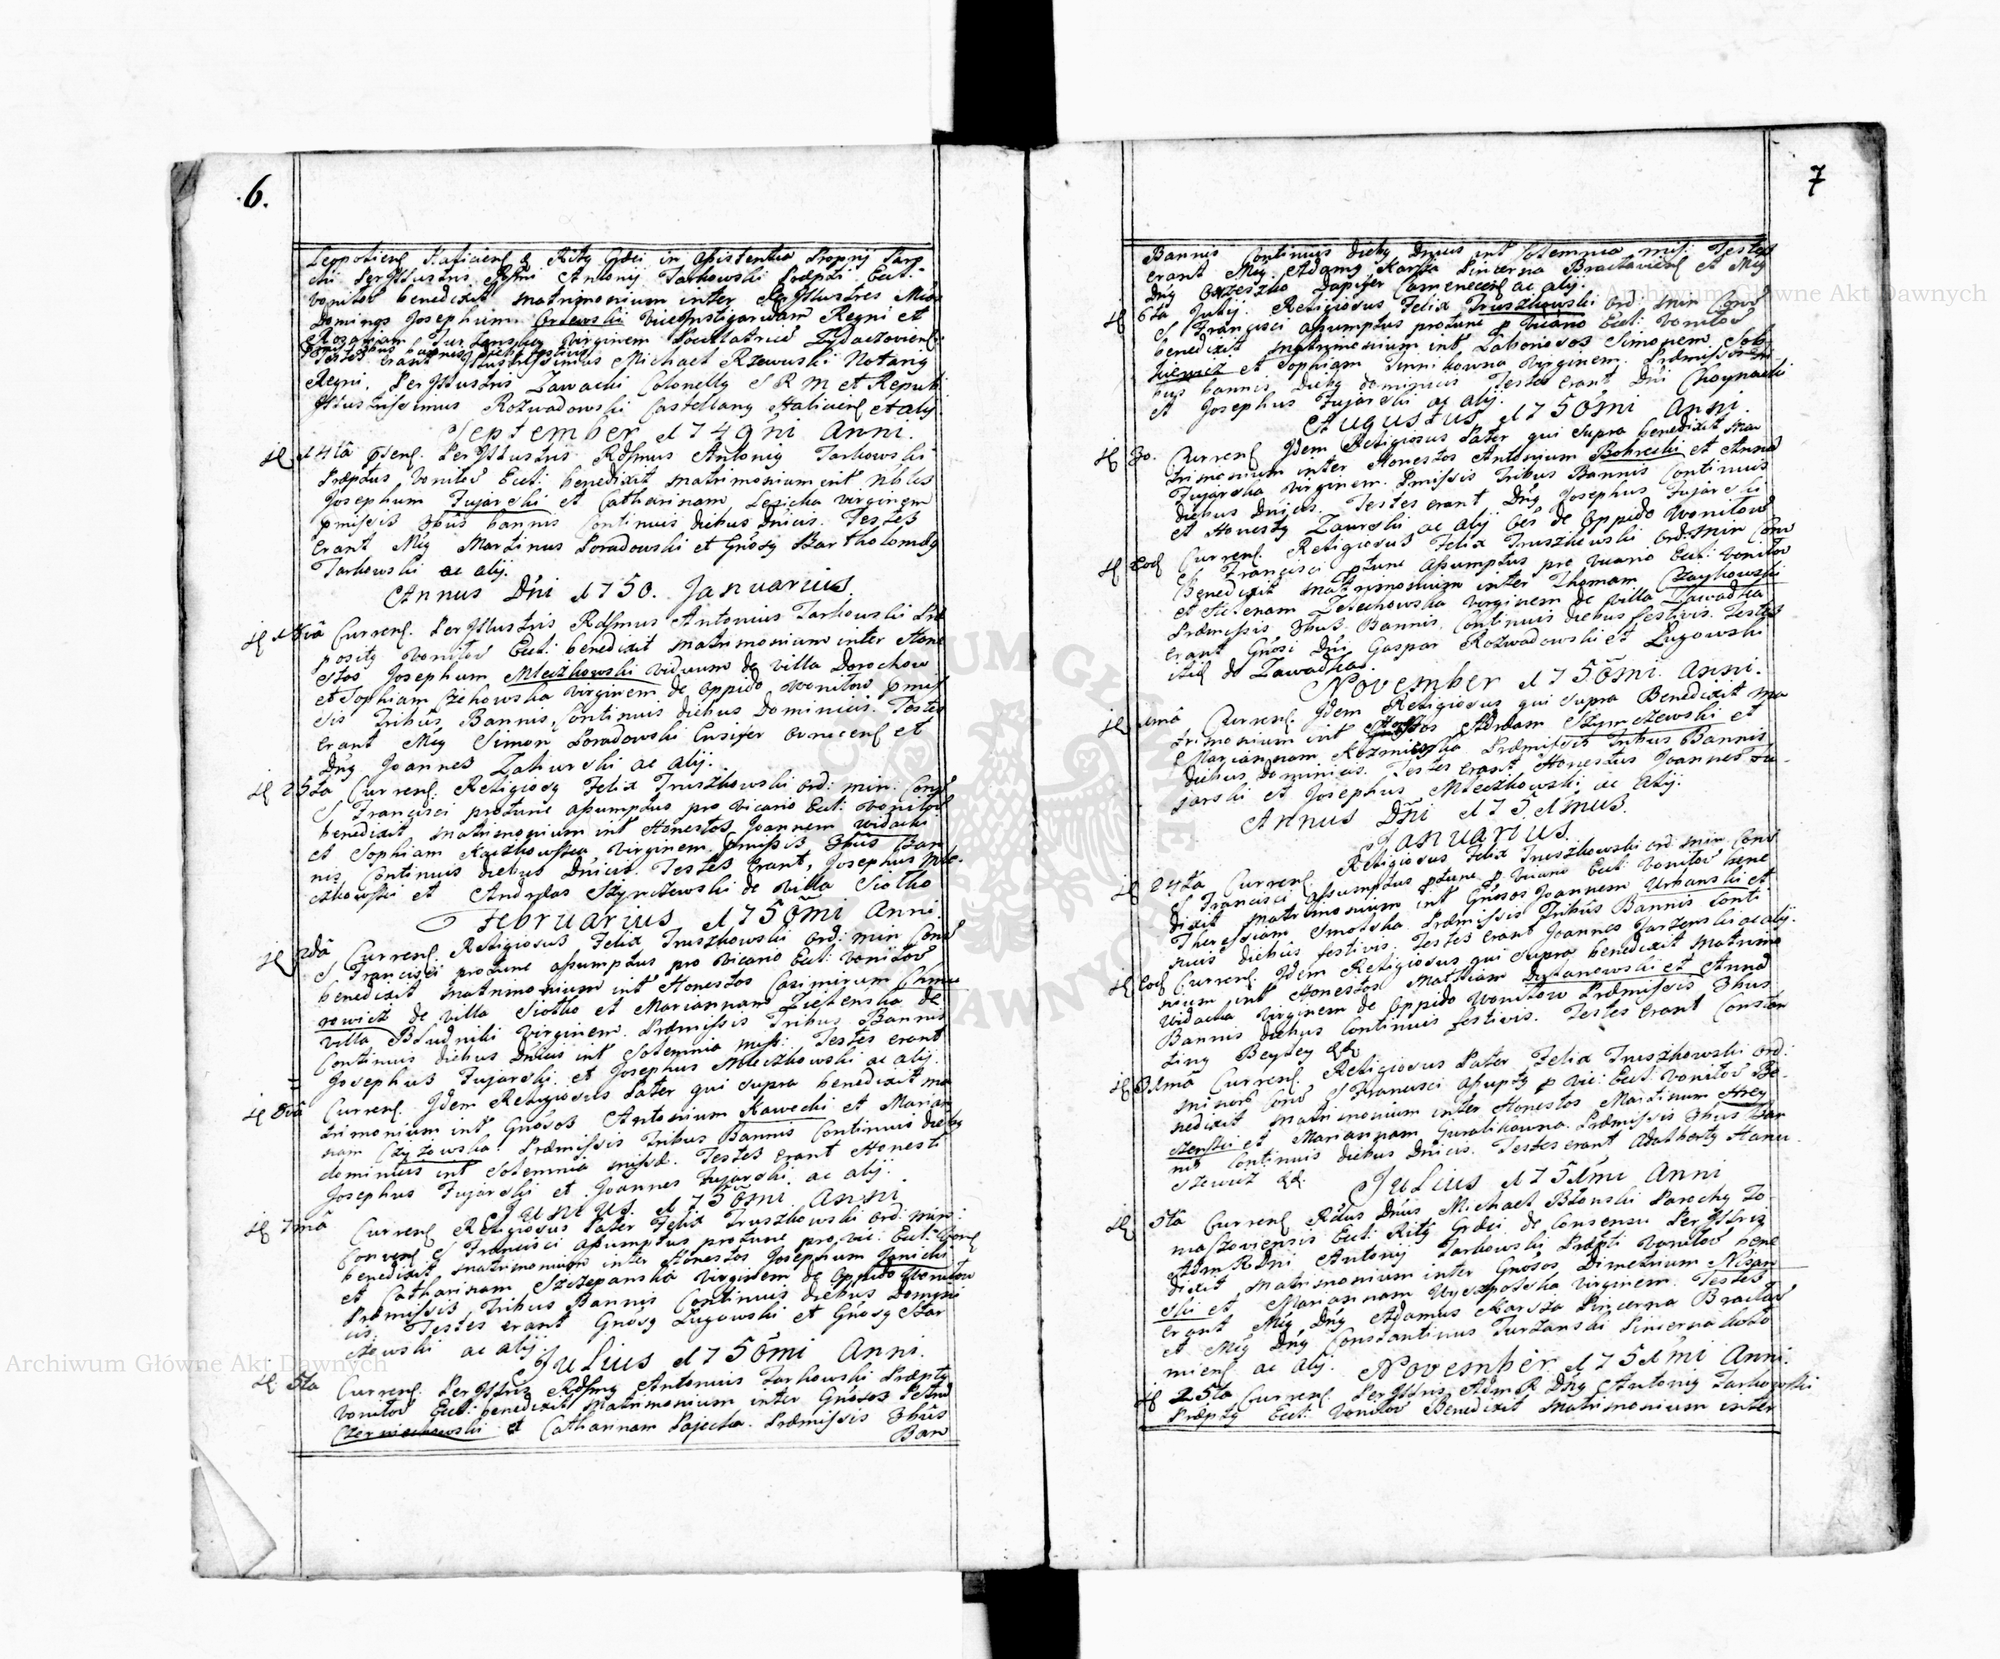 6.
Leopolien Halicien & Ritq Grdci in assistentia Proprij Paro
chi PerIllustris Rssmi Antonij Tarkowski Præpti Eccl:
Vonitow benedixit matrimonium inter PerIllustres Mios
Dominos Josephum Orlewski ViceInstigardam Regni et
Rozariam Virginem Pocillatricē Zydaczovien:
Testes erant Illustrissimus Michael Rzewuski Notariq
Regni, PerIllustris Zawacki Colonellq S R M et Reipub:
Illustrissimus Rozwadowski Castellanq Halicien et alij.
September d 1749ni Anni.
d 14ta Psens. PerIllustris Rdssmus Antoniq Tarkowski
Præptus Vonitow Eccl: benedixit matrimonium int Nbles
Josephum Fujarski et Catharinam Lesicka virginem
pmissis 3bus bannis Continuis diebus Dnicis. Testes
erant Mcq Martinus Poradowski et Gnosq Bartholomæq
Tarkowski ac alij.
Annus Dni d 1750. Januarius.
Currens. PerIllustris Rdssmus Antonius Tarkowski Præ
positq Vonitow Eccl: benedixit matrimonium inter Hone
stos Josephum Mleczkowski viduum de villa Dorochow
et Sophiam Czehowska virginem de Oppido Wonitow pmis
sis Tribus Bannis, Continuis diebus Dominicis. Testes
erant Mcq Simon Poradowski Ensifer Owrucens et
Dnq Joannes Zakurski ac alij.
d 25ta Currens. Religiosq Felix Truszkowski ord: min: Conv
S Francisci protunc assumptus pro Vicario Eccl: Vonitow
benedixit matrimonium int Honestos Joannem Widacki
et Sophiam Kaczkowska Virginem. Pmissis 3bus Ban
nis Continuis diebus Dnicis. Testes Erant, Josephus Mle-
czkowski et Andreas Szynczewski de Villa Siolko
Februarius d 1750mi Anni.
2da Currens. Religiosus Felix Truszkowski Ord: min Conv
S Francisci protunc assumptus pro Vicario Eccl: Vonitow
benedixit matrimonium int Honestos Casimirum Chmu
rowicz de Villa Siolko et Mariannam Zielenska de
villa Bludniki Virginem. Præmissis Tribus Bannis
Continuis diebus Dnicis int Solemnia miss: Testes erant
Josephus Fujarski et Josephus Mleczkowski ac alij.
8va Currens. Idem Religiosus Pater qui supra benedixit ma
trimonium int Gnosos Antonium Kawecki et Marian
nam Czyzowska. Præmissis Tribus Bannis Continuis diebq
dominicis int Solemnia missæ. Testes erant Honesti
Josephus Fujarski et Joannes Fujarski, ac alij.
Junius d 1750mi Anni
7ma Currens Religiosus Pater Felix Truszkowski ord: min:
Conven S Francisci assumptus protunc pro Vic: Eccl: Vonit
benedixit matrimonium inter Honestos Josephum Janicki
et Catharinam Szczepanska Virginem de Oppido Wonitow
Præmissis Tribus Bannis Continuis diebus Domini
cis. Testes erant Gnosq Lugowski et Gnosq Star
zowski ac alij.
Julius d 1750mi Anni.
5ta Currens. PerIllris Rdssmq Antonius Tarkowski Præptq
Vonitow Eccl: benedixit Matrimonium inter Gnosos Petrum
Czermachowski et Catharinam Pajecka. Præmissis 3bus
Ban
7
Bannis Continuis diebq Dnicis int Solemnia mis: Testes
erant Mcq Adamq Karsza Pincerna Braclavien et Mcq
Dnq Orzeszko Dapifer Camenecen ac alij.
6ta Julij. Religiosus Felix Truszkowski Ord: min Conv
S Francisci assumptus protunc p Vicario Eccl: Vonitow
benedixit matrimonium int Laboriosos Simonem Sob
kiewicz et Sophiam Virginem. Præmissis tri
bus bannis diebq dominicis Testes erant Dni Choynacki
et Josephus Fujarski ac alij.
Augustus d 1750mi Anni.
Currens. Idem Religiosus Pater qui supra benedixit Ma
trimonium inter Honestos Antonium Bokrecki et Anna
Fujarska virginem. Pmissis Tribus Bannis Continuis
diebus Dnicis. Testes erant Dnq Josephus Fujarski
et Honestq Zaurski ac alij oēs de Oppido Wonitow
Eod Currens. Religiosus Felix Truszkowski Ord: min Conv
S Francisci ptunc assumptus pro Vicario Eccl: Vonitow
Benedixit Matrimonium inter Thomam Czaykowski
et Helenam Zelechowska virginem de Villa Zawadka
Præmissis 3bus Bannis Continuis diebus festivis. Testes
erant Gnosi Dni Gaspar Rozwadowski et Lugowski
de Zawadka.
November d 1750mi Anni.
1ma Currens. Idem Religiosus qui supra Benedixit Ma
trimonium int Honestos Adam Szymczewski et
Mariannam Kozmicska Præmissis Tribus Bannis
diebus Dominicis. Testes erant Honestus Joannes Fu-
jarski et Josephus Mleczkowski, ac alij.
Annus Dni d 1751mus.
Januarius.
24ta Currens Religiosus Felix Truszkowski Ord: min Conv:
S Francisci assumptus ptunc p Vicario Eccl: Vonitow bene
dixit matrimonium int Gnosos Joannem Urbanski et
Theressiam Smolska Præmissis Tribus Bannis Conti
nuis diebus festivis. Testes erant Joannes Jarzenski ac alij.
Eod Currens. Idem Religiosus qui supra benedixit matrimo
nium int Honestos Mathiam Dutanowski et Anna
Widacka Virginem de Oppido Wonitow Præmissis 3bus
Bannis diebus Continuis festivis. Testes erant Constan
tinq Beyzey &&
31ma Currens. Religiosus Pater Felix Truszkowski Ord:
minor Conv S Francisci assuptq p Vic: Eccl: Vonitow Be-
nedixit matrimonium inter Honestos Martinum Hrey
szenski et Mariannam Guralikowna. Præmissis 3bus Ban
nis Continuis diebus Dnicis. Testes erant Adalbertq Hanu-
szewicz &&.
Julius d 1751mi Anni
5ta Currens Rdus Dnus Michael Blonski Parochq To-
maszoviensis Eccl: Ritq Grdci de Consensu PerIllris
Adm Rdni Antonij Tarkowski Præpti Vonitow bene
dixit matrimonium inter Gnosos Dimetrium Nizan
ski et Mariannam Wyszpolska Virginem. Testes
erant Mcq Dnq Adamus Karsza Pincerna Braclav
et Mcq Dnq Constantinus Turzanski Pincerna kolo
mien ac alij.
November d 1751mi Anni.
25ta Currens PerIllris Adm R Dnq Antoniq Tarkowski
Præptq Eccl: Vonitow Benedixit matrimonium inter